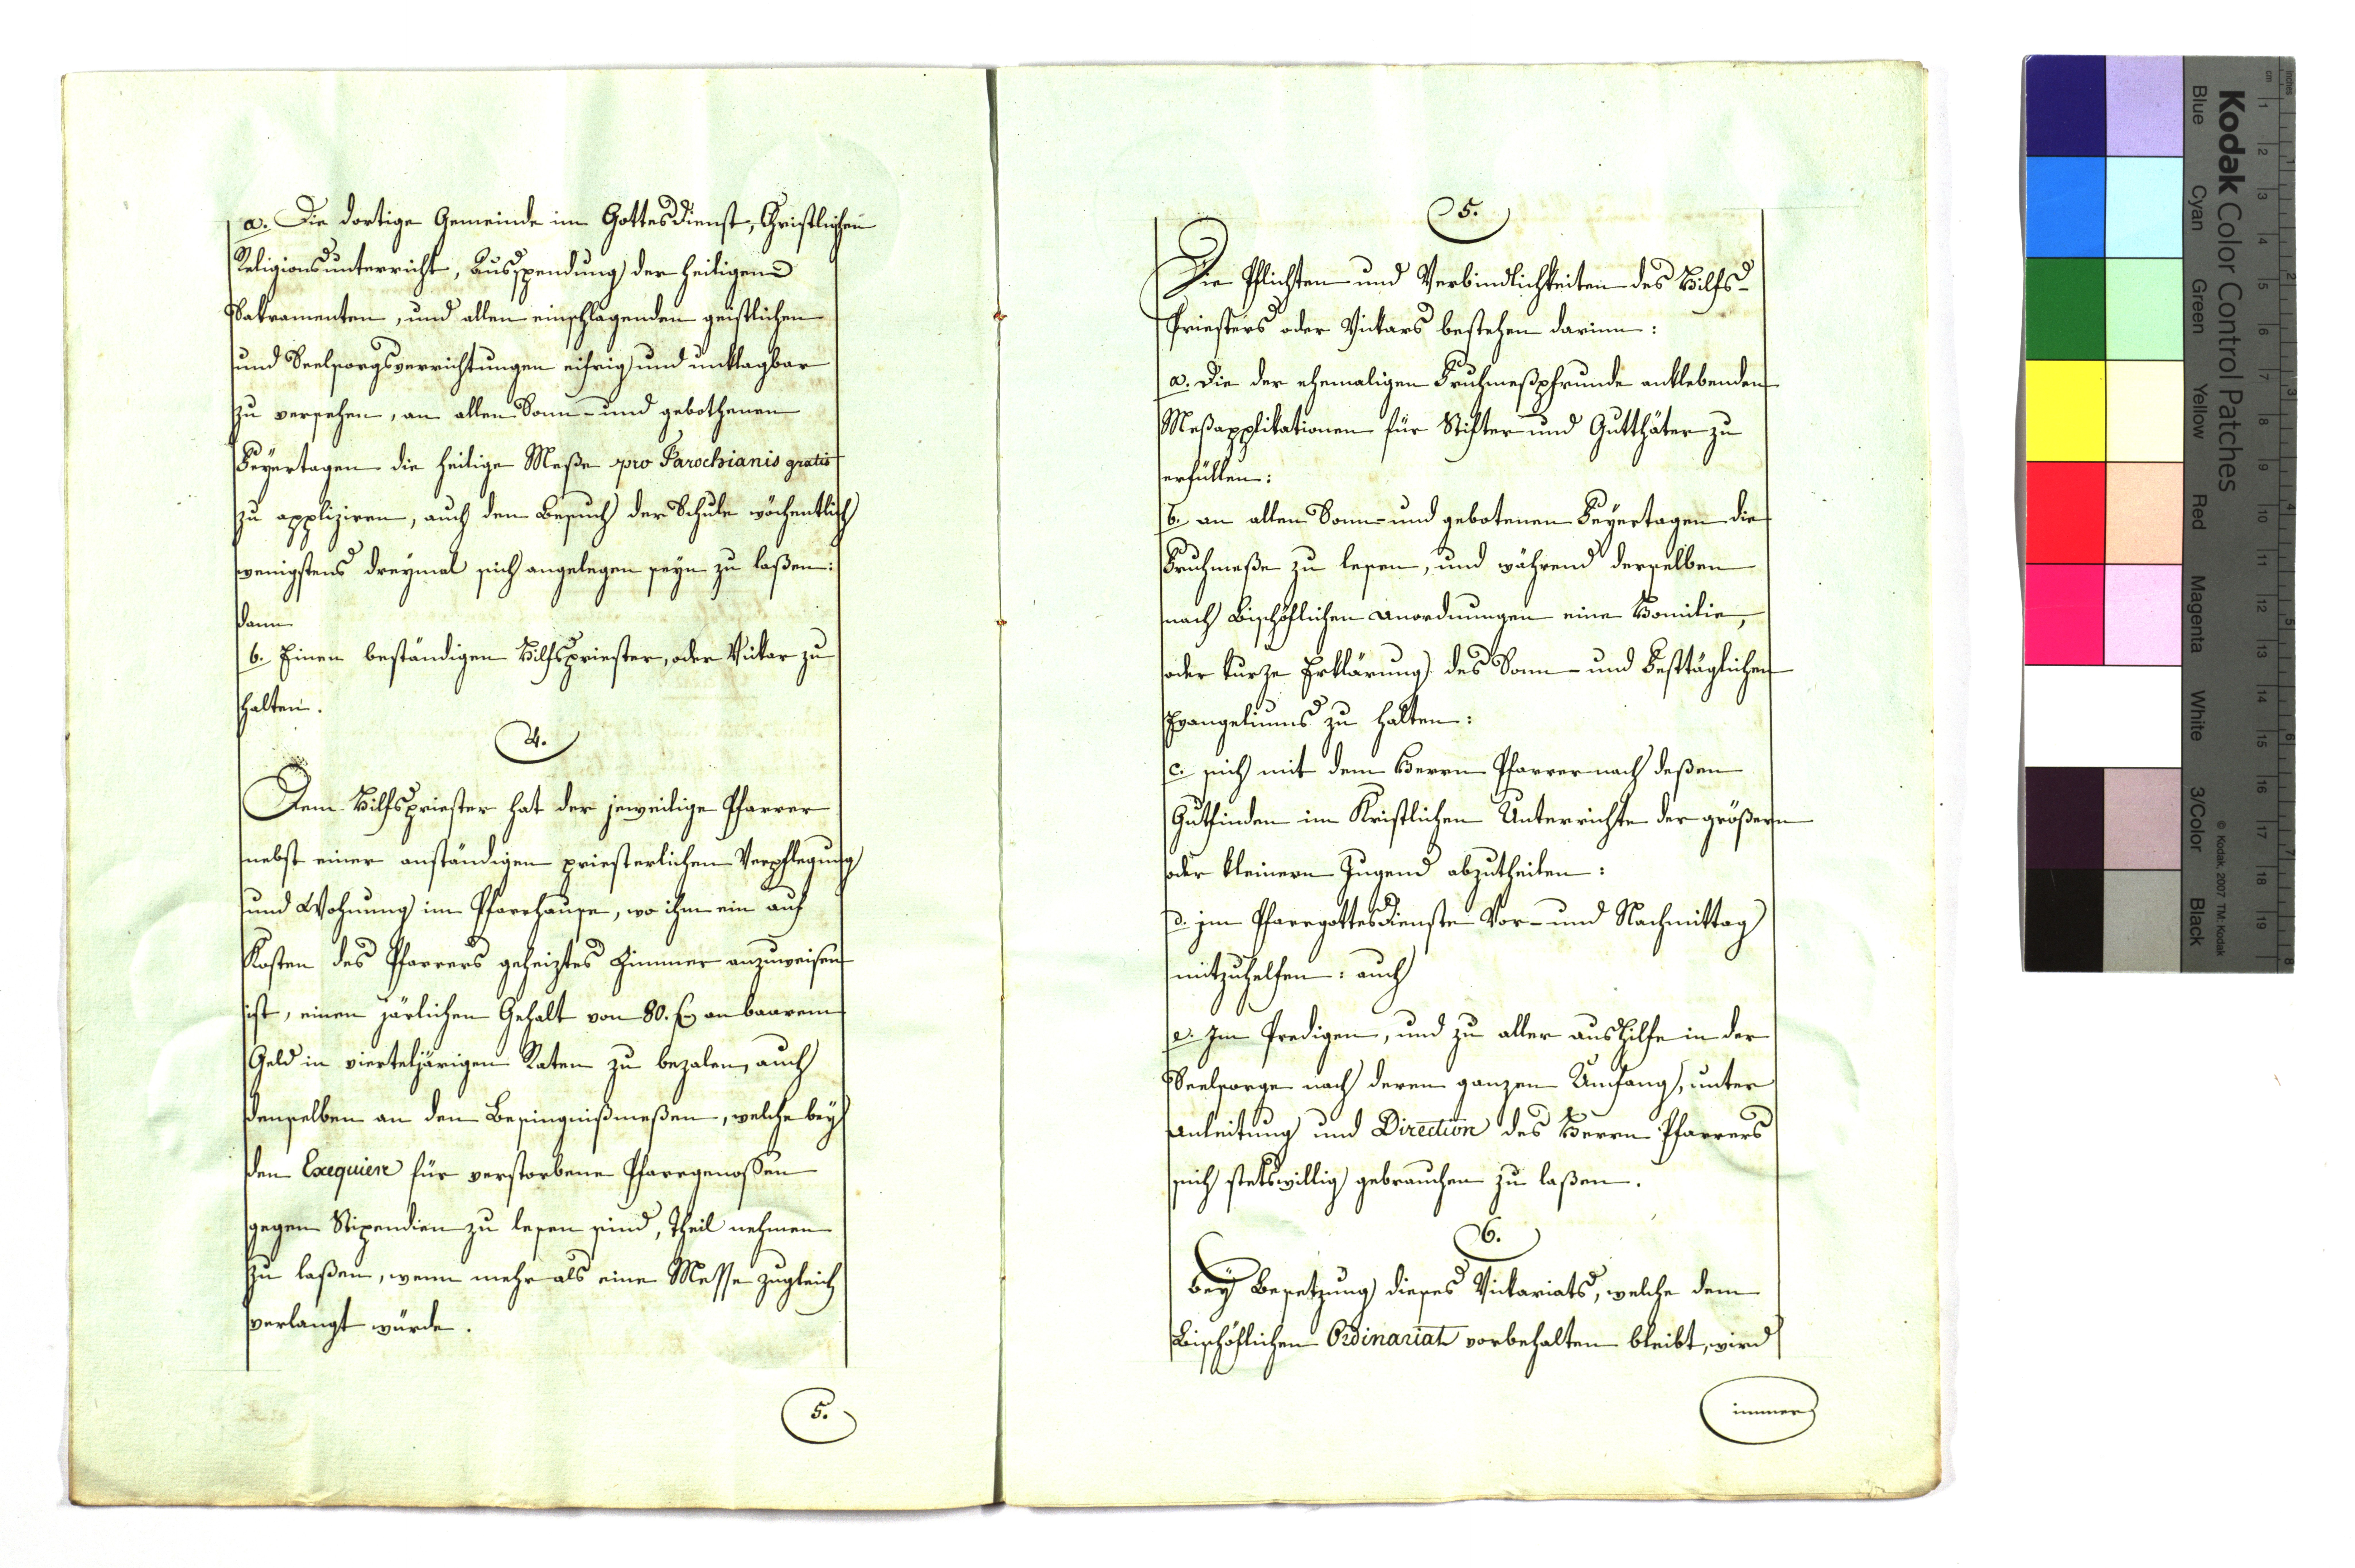 a. Die dortige Gemeinde im Gottesdienst, Christlichen
Religionsunterricht, Ausspendung der heiligen
Sakramenten, und allen einschlagenden geistlichen
und Seelsorgsverrichtungen eifrig und unklagbar
zu versehen, an allen Sonn- und gebothenen
Feyertagen die heilige Meße pro Parochianis gratis
zu appliziren, auch den Besuch der Schule wöchentlich
wenigstens dreymal sich angelegen seyn zu laßen:
dann
b. Einen beständigen Hilfspriester, oder Vikar zu
halten.
4.
Dem Hilfspriester hat der jeweilige Pfarrer
nebst einer anständigen priesterlichen Verpflegung
und Wohnung im Pfarrhause, wo ihm ein auf
Kosten des Pfarrers geheiztes Zimmer anzuweisen
ist, einen järlichen Gehalt von 80. f. an baarem
Geld in vierteljärigen Raten zu bezalen, auch
denselben an den Besingnißmeßen, welche bey
den Exequien für verstorbene Pfarrgenossen
gegen Stipendien zu lesen sind, Theil nehmen
zu laßen, wenn mehr als eine Messe zugleich
verlangt würde.
5.
5.
Die Pflichten und Verbindlichkeiten des Hilfs-
Priesters oder Vickars bestehen darinn:
a. Die der ehemaligen Fruhmeßpfrunde anklebenden
Meßapplikationen für Stifter und Gutthäter zu
erfüllen:
b. an allen Sonn- und gebotenen Feyertagen die
Fruhmeße zu lesen, und während derselben
nach Bischöflichen Anordnungen eine Homilie,
oder kurze Erklärung des Sonn- und Festtäglichen
Evangeliums zu halten:
c. sich mit dem Herrn Pfarrer nach deßen
Gutfinden im Kristlichen Unterrichte der größern
oder kleinern Jugend abzutheilen:
d. im Pfarrgottesdienste Vor- und Nachmittag
mitzuhelfen: auch
e. Im Predigen, und zu aller Aushilfe in der
Seelsorge nach deren ganzen Umfang, unter
Anleitung und Direction des Herrn Pfarrers
sich stetswillig gebrauchen zu laßen.
6.
Bey Besetzung dieses Vickariats, welche dem
Bischöflichen Ordinariat vorbehalten bleibt, wird
immer
Kodak Color Control Patches
Blue Cyan Green Yellow Red Magenta White 3/Color Black
© Kodak, 2007 TM: Kodak
cm 1 2 3 4 5 6 7 8 9 10 11 12 13 14 15 16 17 18 19
inches 1 2 3 4 5 6 7 8